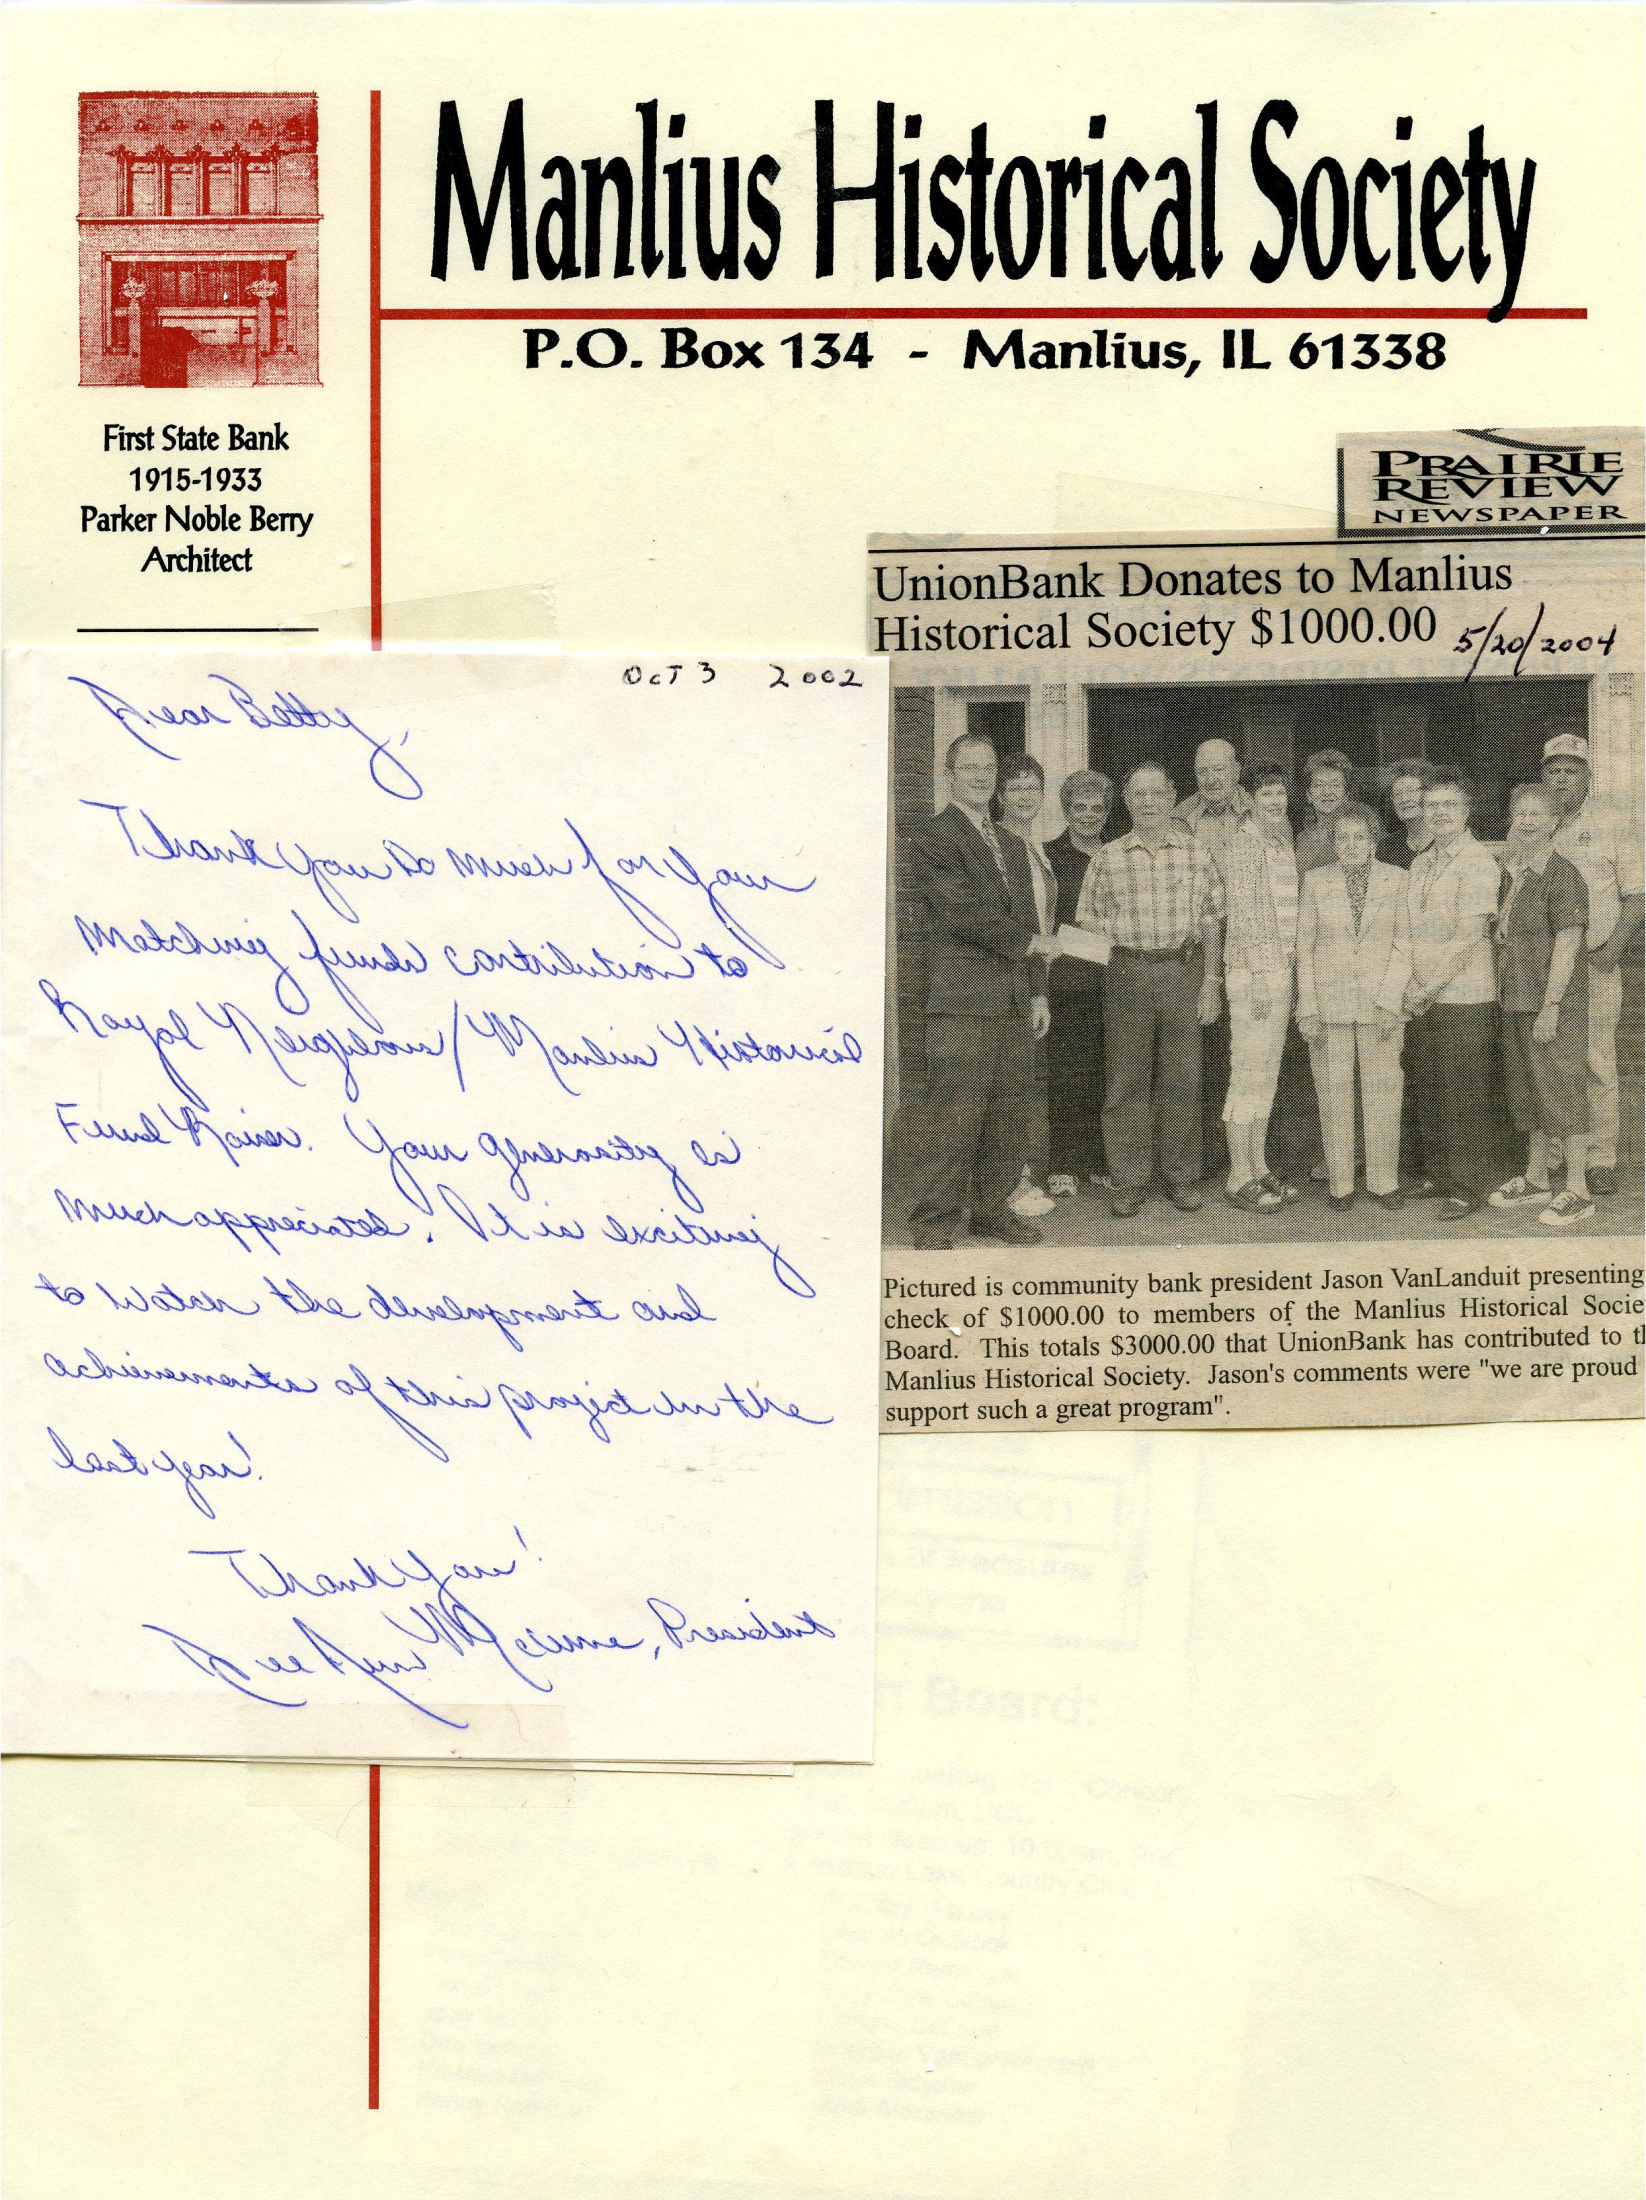 Manlius Historical Society
P.O. Box 134 - Manlius, IL 61338
First State Bank
1915-1933
Parker Noble Berry
Architect
PRAIRIE
REVIEW
NEWSPAPER
UnionBank Donates to Manlius
Historical Society $1000.00 5/20/2004
Pictured is community bank president Jason VanLanduit presenting
check of $1000.00 to members of the Manlius Historical Socie
Board. This totals $3000.00 that UnionBank has contributed to th
Manlius Historical Society. Jason's comments were "we are proud
support such a great program".
OCT 3 2002
Dear Betty,
Thank you so much for your
matching funds contribution to
Royal Neighbors/Manlius Historical
Fund Raiser. Your generosity is
much appreciated. It is exciting
to watch the development and
achievements of this project in the
last year!
Thank you!
Dee Ann Mccune, President